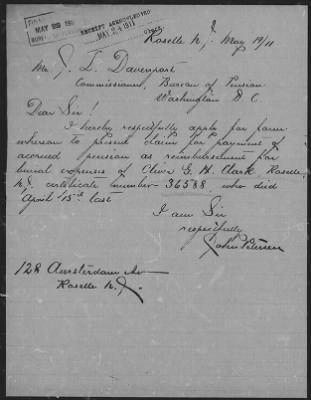 MAY 23 1911
RECEIPT ACKNOWLEDGED
MAY 24 1911
Roselle N.J. May 19/11
Mr J. L. Davenport
Commissioner, Bureau of Pension
Washington D C
Dear Sir!
I hereby respectfully apply for form
whereon to present claim for payment of
accrued pension as reimbursement for
burial expenses of Oliver G. H. Clark, Roselle
N.J. certificate number 36588 who died
April 15th last
I am Sir
respectfully
John Petersen
128 Amsterdam Av
Roselle N.J.